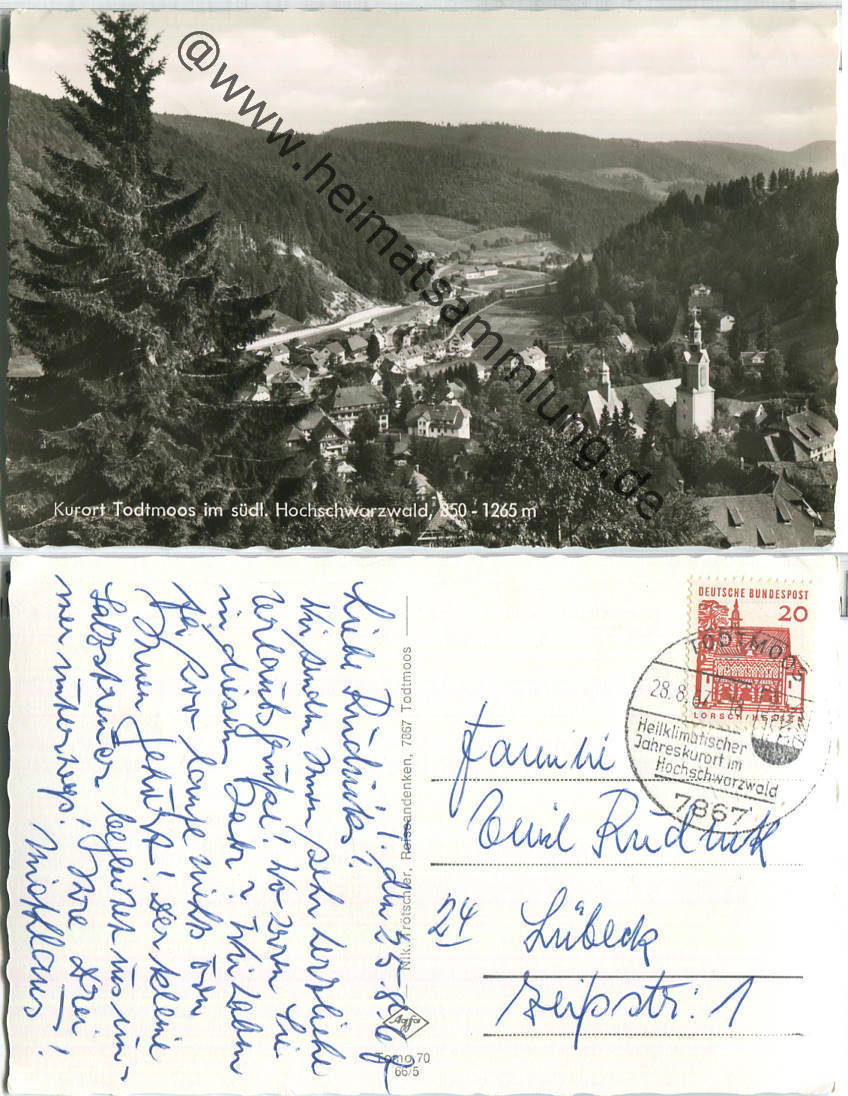 @www.heimatsammlung.de
Kurort Todtmoos im südl. Hochschwarzwald, 850 - 1265 m
DEUTSCHE BUNDESPOST
20
LORSCH/HESSEN
TODTMOOS
28.8.67
Heilklimatischer
Jahreskurort im
Hochschwarzwald
7867
Nik. Trötschler, Reiseandenken, 7867 Todtmoos
Agfa
Tomo 70
66/5
den 25.8.67
Liebe Rudniks!
Wir senden Ihnen sehr herzliche
Urlaubsgrüße! Wo waren Sie
in diesem Jahr? Wir haben
ja gar lange nichts von
Ihnen gehört! Der kleine
begleitet uns im-
mer unterwegs! Ihre drei
Familie
Emil Rudnik
24 Lübeck
1